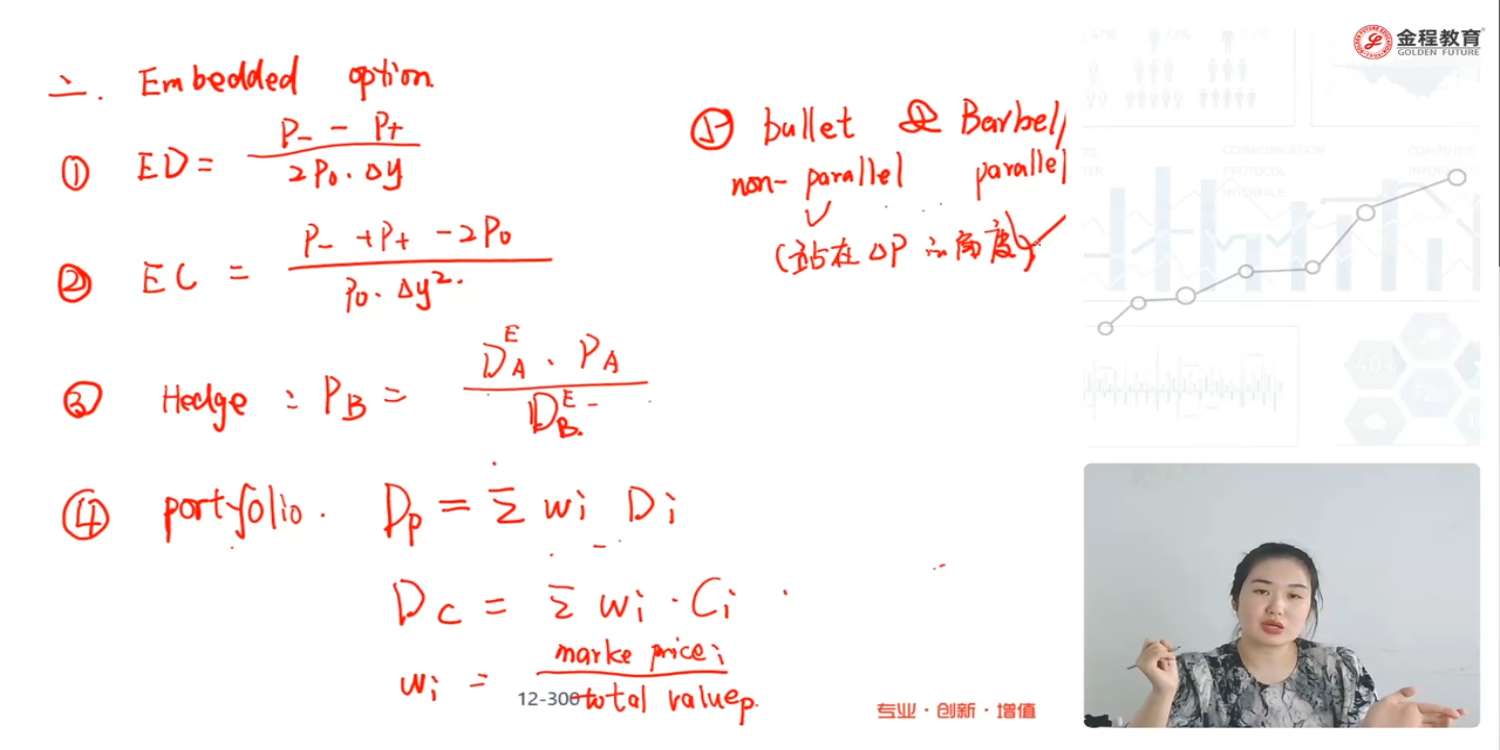 二. Embedded option
① ED = P₋ - P₊ / 2P₀·Δy
② EC = P₋ + P₊ - 2P₀ / P₀·Δy².
③ Hedge : P_B = D_A^E · P_A / D_B^E
④ portfolio. D_p = Σ wi Di
D_C = Σ wi · Ci
wi = marke price i / total value p.
⑤ bullet & Barbell
non-parallel parallel
(站在ΔP的角度)
12-300
专业·创新·增值
金程教育
GOLDEN FUTURE